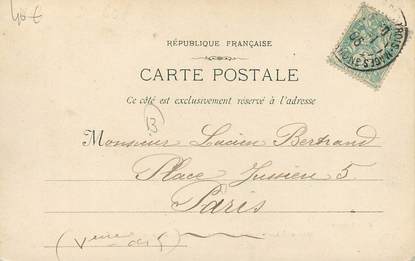 40€
RÉPUBLIQUE FRANÇAISE
CARTE POSTALE
Ce côté est exclusivement réservé à l'adresse
13
Monsieur Lucien Bertrand
Place Jussieu 5
Paris